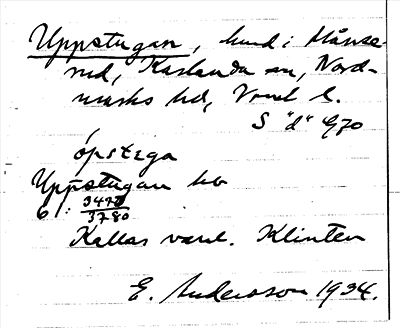 Uppstugan, hmd i Månse-
rud, Karlanda sn, Nord-
marks hd, Vrml l.
S "d" 970
öpstega
Uppstugan hb
6 1: 3478/3780
Kallas vanl. Klinten
E. Andersson 1934.